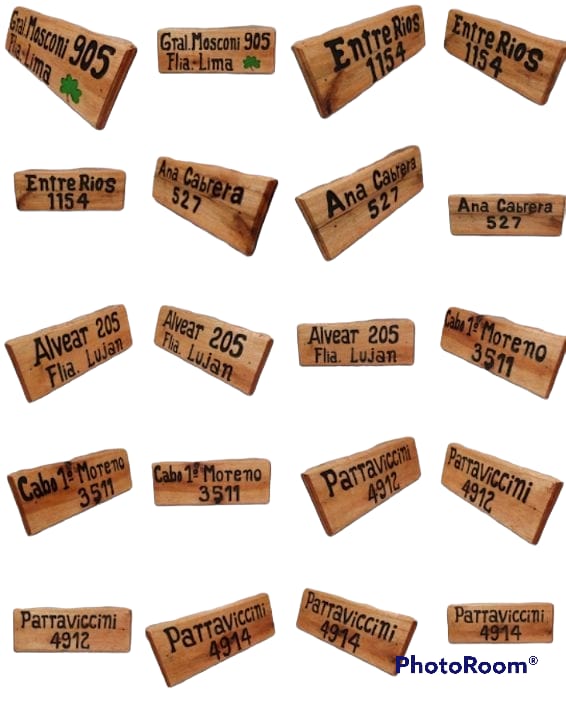 Gral. Mosconi 905
Flia. Lima
Gral. Mosconi 905
Flia. Lima
Entre Rios
1154
Entre Rios
1154
Entre Rios
1154
Ana Cabrera
527
Ana Cabrera
527
Ana Cabrera
527
Alvear 205
Flia. Lujan
Alvear 205
Flia. Lujan
Alvear 205
Flia. Lujan
Cabo 1º Moreno
3511
Cabo 1º Moreno
3511
Cabo 1º Moreno
3511
Parraviccini
4912
Parraviccini
4912
Parraviccini
4912
Parraviccini
4914
Parraviccini
4914
Parraviccini
4914
PhotoRoom®